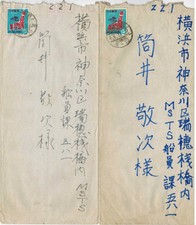 221
横浜市神奈川区瑞穂桟橋内
MSTS
船員課五八一
筒井敬次様
221
横浜市神奈川区瑞穂桟橋内
MSTS船員課五八一
筒井敬次様